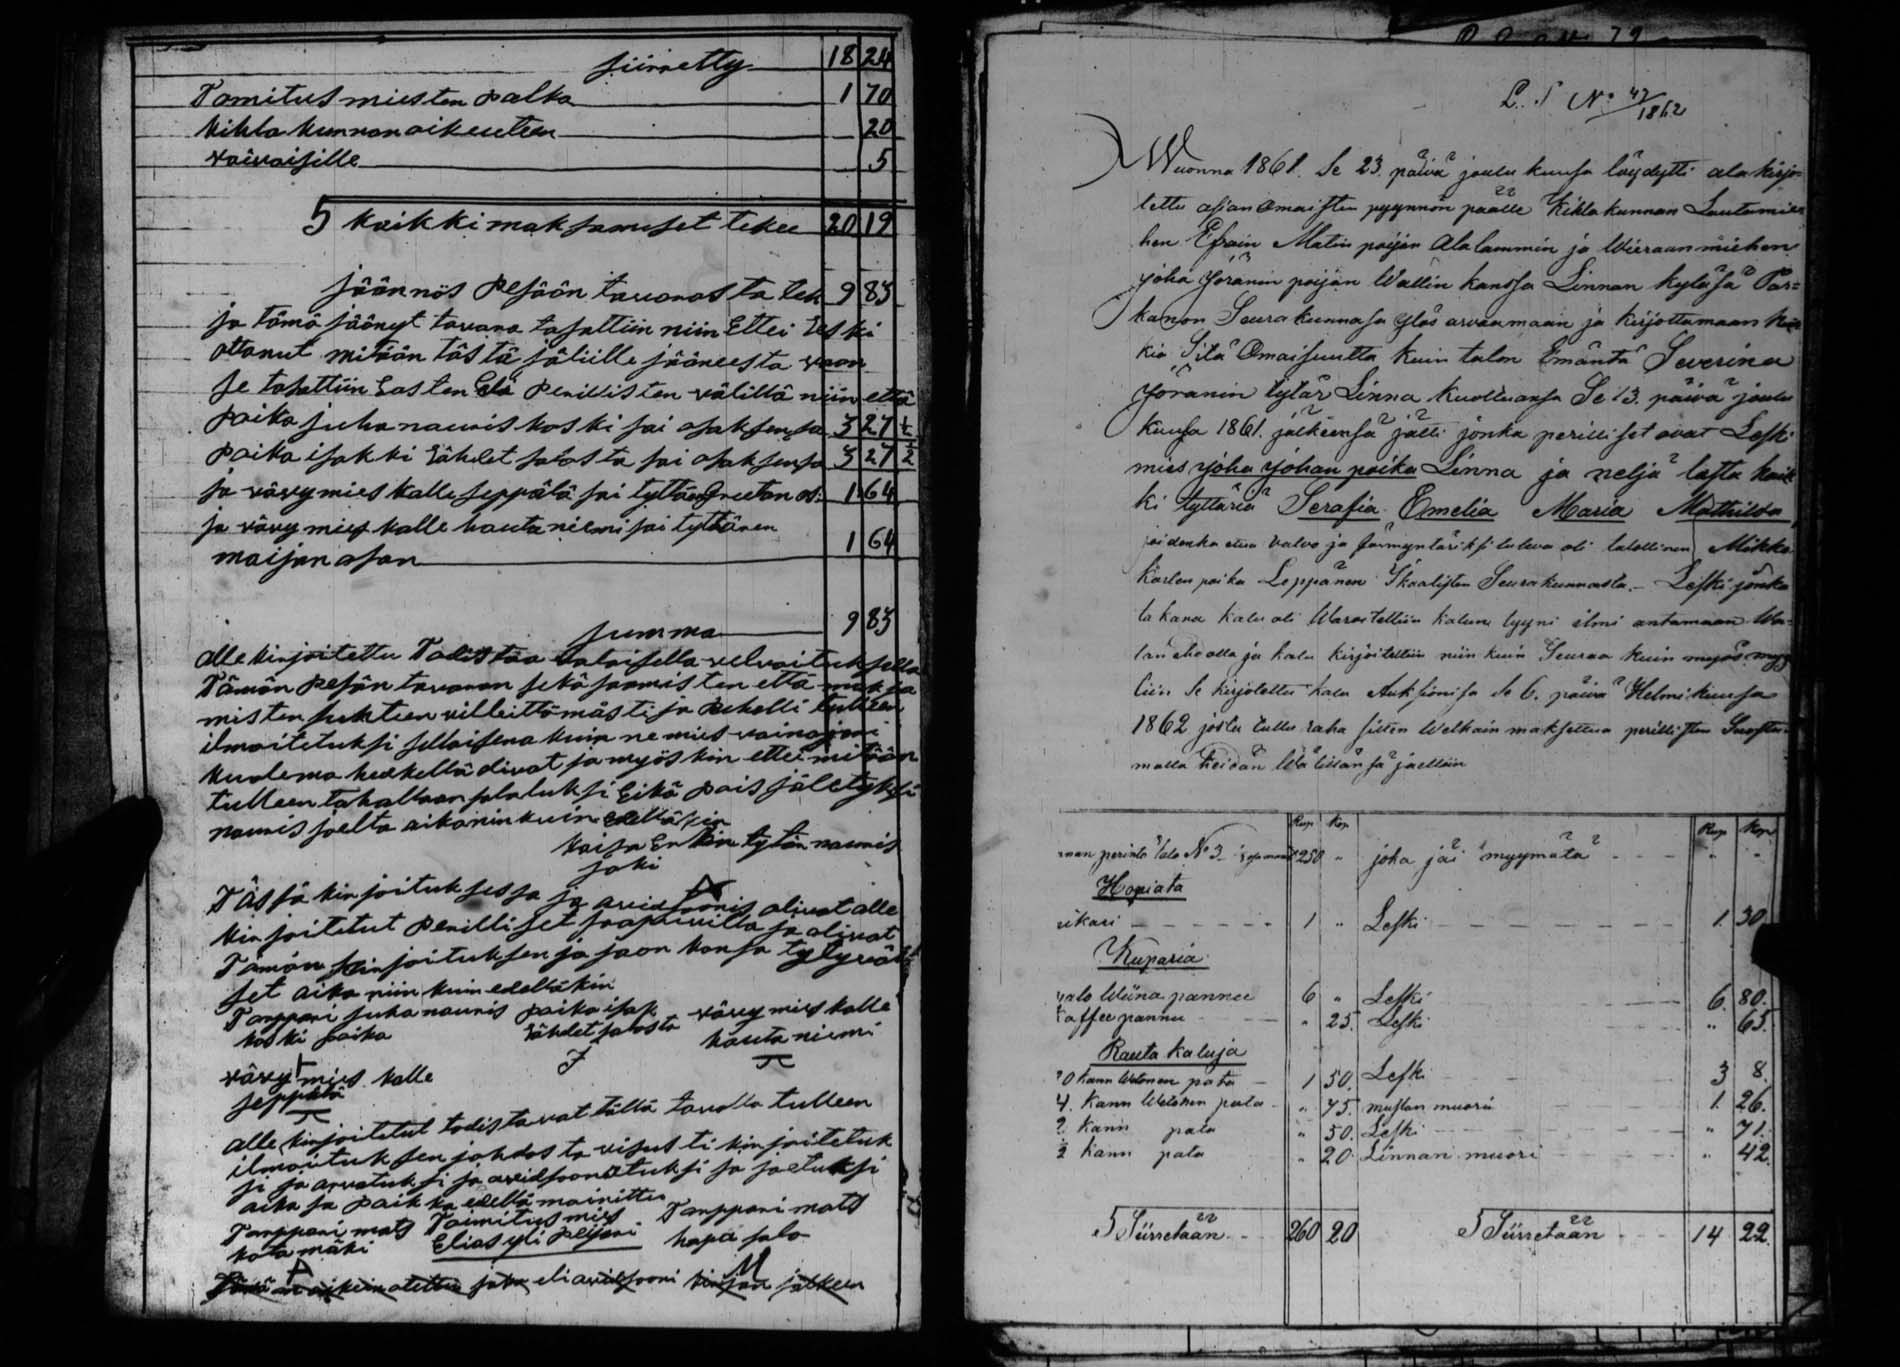 siirretty 18 24
Tomitus miesten palka 1 70
kihla kunnan oikeuteen 20
vaivaisille 5
S kaikki maksamiset tekee 20 19
jäännös pesään tavarasta teh 9 83
ja tämä jäänyt tavara tasattiin niin Ettei leski
ottanut mitään tästä jälille jääneestä vaan
se tasattiin Lasten Elä perillisten välillä niin että
poika juha nauriskoski sai osaksensa 3 27 1/2
poika isakki Lähdet salosta sai osaksensa 3 27 1/2
ja vävymies kalle seppälä sai tyttären greetan os: 1 64
ja vävy mies kalle hautaniemi sai tyttären
maijan osan 1 64
summa 9 83
alle kirjoitettu Todistaa valaisella velvoituksella
Tämän pesän tavaran sekä saamisten että maksa
misten suhteen villeittömästi ja puhelli tulleen
ilmoitetuksi sellaisena kuin ne mies vainajani
kuolema hetkellä olivat ja myöskin ettei mitään
tulleen tahallaan salatuksi Eikä pois jäletyksi
nauris joelta aika nin kuin edelläkin
kaisa Erkin tytön nauris
joki
Tässä kirjoituksessa ja avidsoonis olivat alle
kirjoitetut perilliset saapuvilla ja olivat
Tämän kirjoituksen ja jaon kansa tytyväi
set aika niin kuin edelläkin
Torppari juha nauris poika isak vävy mies kalle
koski poika Lähdet salosta hauta niemi
vävy mies kalle
seppälä
alle kirjoitetut todistavat tällä tavalla tulleen
ilmoituksen johdosta visusti kirjoitetuk
si ja arvatuksi ja avidsoonetuksi ja jaetuksi
aika ja paikka edellä mainittu
Torppari mats Toimitus mies Torppari mats
kota mäki Elias yli peijari hapa salo
M
L. T No 47/1862
Wuonna 1861. Se 23. päivä joulu kuusa löydytti ala kirjo-
lettu asian Omaisten pyynnön päälle Kihlakunnan Lautamie
hen Efrain Matin poijan Alalammin ja Wieraanmiehen
Joha Joranin poijan Wallin kanssa Linnan kyläsä Par-
kanon Seurakunnasa ylös arvaamaan ja kirjottamaan kai
kia Sitä Omaisuutta kuin talon Emäntä Severina
Joranin tytär Linna kuolluansa Se 13. päivä joulu
kuusa 1861. jälkeensä jätti jonka perilliset ovat Leski
mies Joha Johan poika Linna ja neljä lasta kaik
ki tyttäriä Serafia Emelia Maria Mathilda,
joidenka etua valvo ja förmyntäriksi tuleva oli talollinen Mikko
Karlen poika Leppänen Ikaalisten Seurakunnasta. - Leski jonka
ta kana kalu oli Warotettiin kaluu tyyni ilmi antamaan Wa-
lan ehdolla ja kalu kirjoitettiin niin kuin Seuraa kuin myös myy
tiin Se kirjotettu kalu Auksionisa Se 6. päivä Helmikuusa
1862 josta tullu raha sitten Welkain maksettua perillisten Suostu-
malla heidän Wälillänsä jaettiin
Rup Kop Rup Kop
man perintö talo No 3 250 " joka jäi myymätä " "
Hopiata
pikari 1 " Leski 1. 30
Kuparia
palo Wiina pannu 6 " Leski 6. 80.
Caffee pannu " 25. Leski " 65.
Rauta kaluja
10 kann Wetonen pata 1 50. Leski 3 8.
4. kann Wetonen pata " 75. mustan muori 1. 26.
2. kann pata " 50. Leski " 71.
2 kann pata " 20 Linnan muori " 42.
S Siirretään 260 20 S Siirretään 14 22.